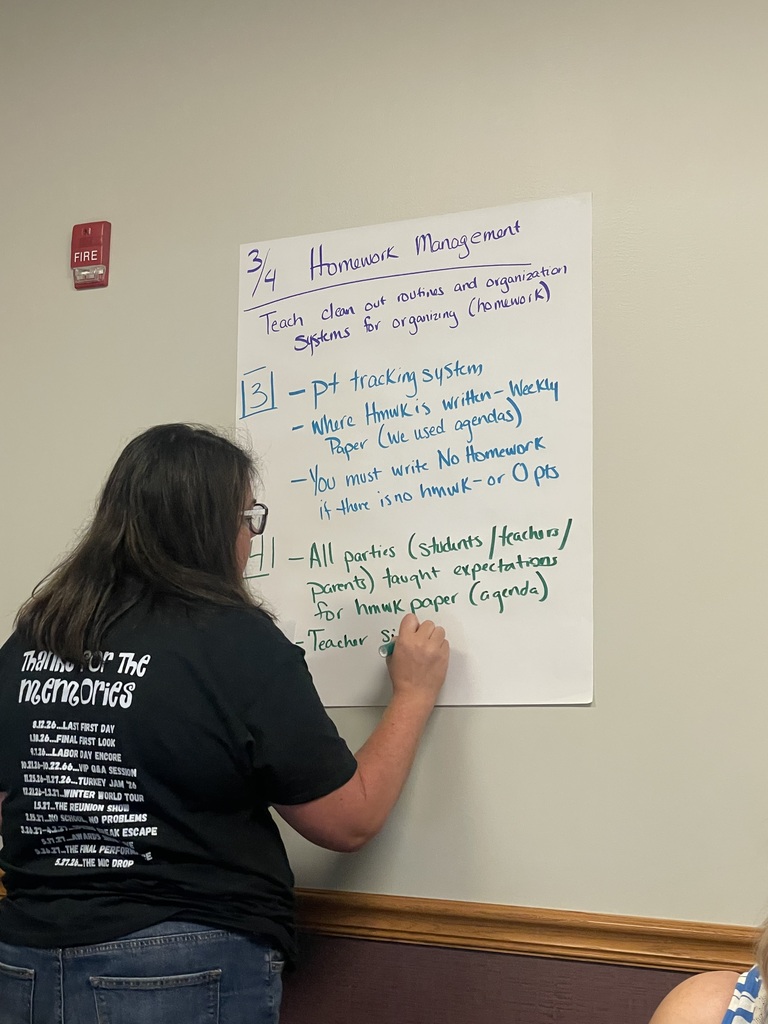 FIRE
3/4 Homework Management
Teach clean out routines and organization
systems for organizing (homework)
3 - pt tracking system
- Where Hmwk is written - Weekly
Paper (We used agendas)
- You must write No Homework
if there is no hmwk - or 0 pts
- All parties (students/teachers/
parents) taught expectations
for hmwk paper (agenda)
- Teacher si
Thanks For The
memories
8.12.26...LAST FIRST DAY
FINAL FIRST LOOK
9.7.26...LABOR DAY ENCORE
VIP Q&A SESSION
11.25.26-11.27.26...TURKEY JAM '26
WINTER WORLD TOUR
1.5.27...THE REUNION SHOW
NO SCHOOL, NO PROBLEMS
ESCAPE
THE FINAL
THE MIC DROP